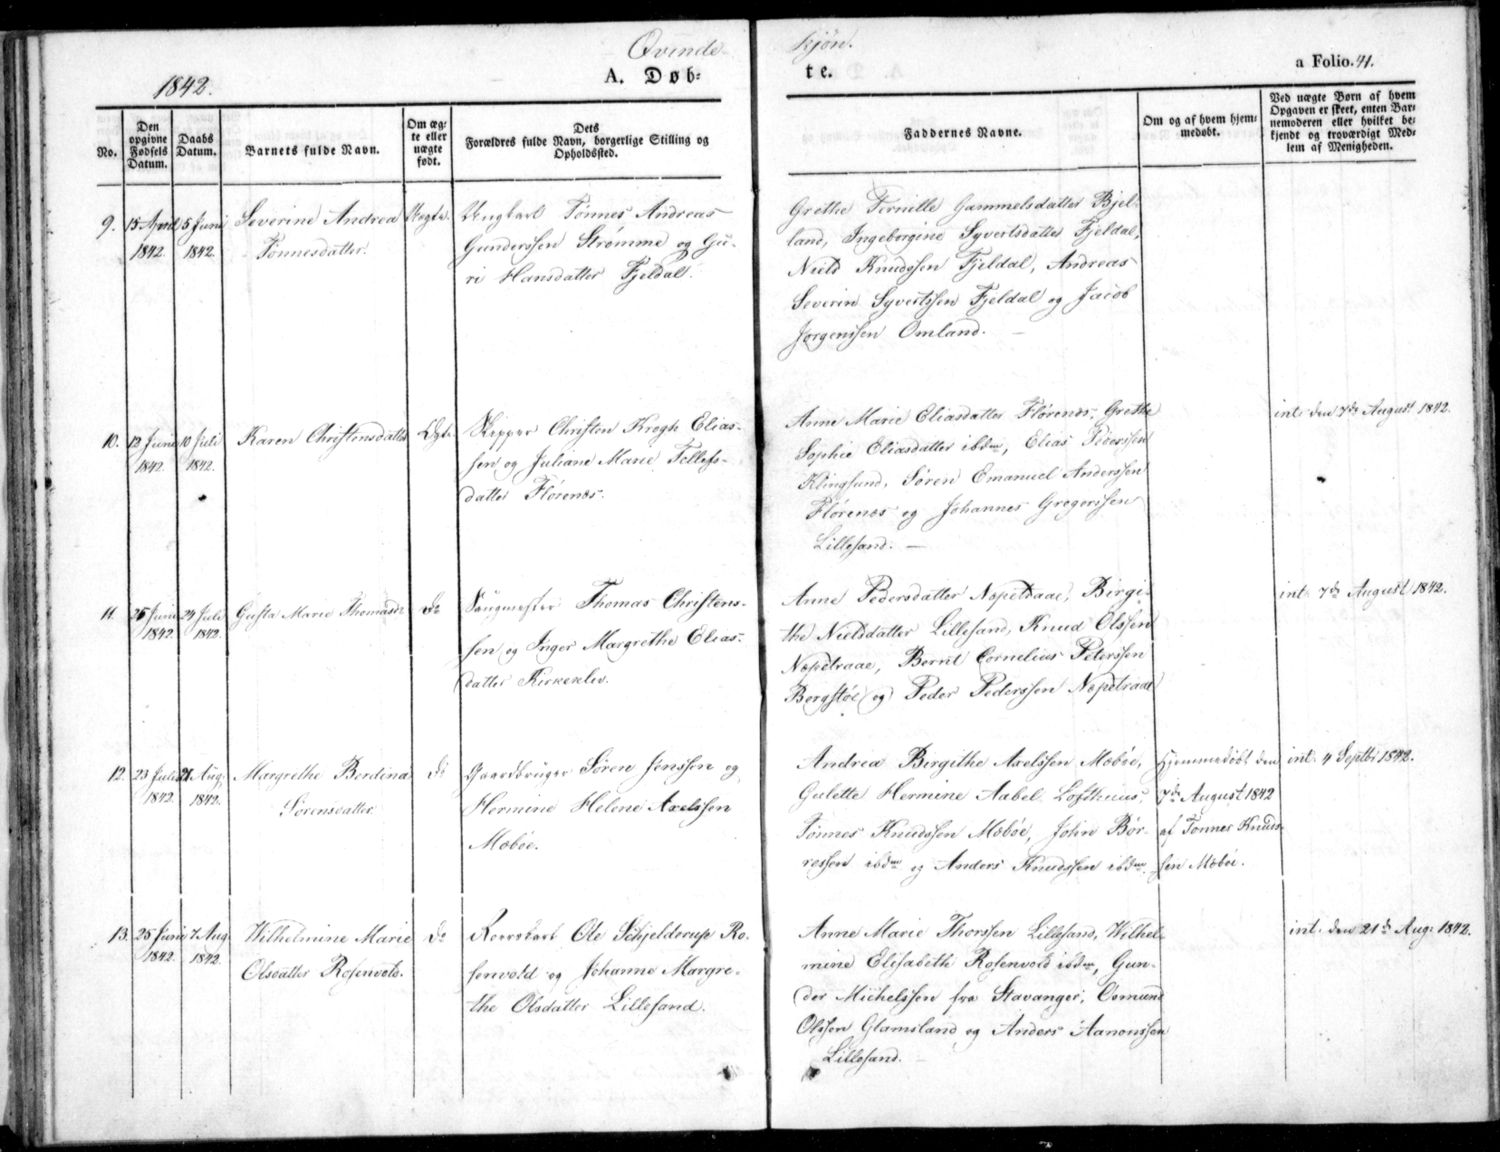 Qvinde-
skjøn.
1842.
A. Døb-
te.
a Folio. 41.
No.
Den opgivne Fødsels Datum.
Daabs Datum.
Barnets fulde Navn.
Om ægte eller uægte født.
Dets Forældres fulde Navn, borgerlige Stilling og Opholdssted.
Faddernes Navne.
Om og af hvem hjemmedøbt.
Ved uægte Børn af hvem Opgaven er skeet, enten Barnemoderen eller hvilket bekjendt og troværdigt Medlem af Menigheden.
9.
15 April 1842.
5 Juni 1842.
Severine Andrea
Tønnesdatter.
Uægte.
Ungkarl Tønnes Andreas
Gunderssen Strømme og Gu-
ri Hansdatter Fjeldal.
Grethe Pernille Gammelsdatter Bjel-
land, Ingeborgine Syvertsdatter Fjeldal,
Niels Knudssen Fjeldal, Andreas
Severin Syvertssen Fjeldal og Jacob
Jørgenssen Omland. —
10.
12 Juni 1842.
10 Juli 1842.
Karen Christensdatter
Ægte
Skipper Christen Krogh Elias-
sen og Juliane Marie Tellefs-
datter Flørenes.
Anne Marie Eliasdatter Flørenes, Grethe
Sophie Eliasdatter ibdm, Elias Pederssen
Klingsund, Søren Emanuel Anderssen
Flørenes og Johannes Gregerssen
Lillesand. —
int. den 7de August 1842.
11.
26 Juni 1842.
24 Juli 1842.
Gusta Marie Thomasd:
do
Saugmester Thomas Christens-
sen og Inger Margrethe Elias-
datter Kirkekleiv.
Anne Pedersdatter Nøpetraae, Birgi-
the Nielsdatter Lillesand, Knud Olssen
Nøpetraae, Bernt Cornelius Peterssen
Bergstøe og Peder Pederssen Nøpetraae
int. 7de August 1842.
12.
23 Juli 1842.
21 Aug. 1842.
Margrethe Berdina
Sørensdatter
do
Gaardbruger Søren Jenssen og
Hermine Helene Axelssen
Møbøe.
Andrea Birgithe Axelssen Møbøe,
Gulette Hermine Aabel Lofthuus,
Tønnes Knudssen Møbøe, John Bør-
ressen ibdm og Anders Knudssen ibdm.
Hjemmedøbt den
7de August 1842
af Tønnes Knuds-
sen Møbøe.
int. 4 Septbr 1842.
13.
25 Juni 1842.
7 Aug. 1842.
Wilhelmine Marie
Olsdatter Rosenvold.
do
Ole Schjelderup Ro-
senvold og Johanne Margre-
the Olsdatter Lillesand.
Anne Marie Thorssen Lillesand, Wilhel-
mine Elisabeth Rosenvold ibdm, Gun-
der Michelssen fra Stavanger, Osmund
Olssen Glamsland og Anders Aanonssen
Lillesand. —
int. den 21de Aug: 1842.